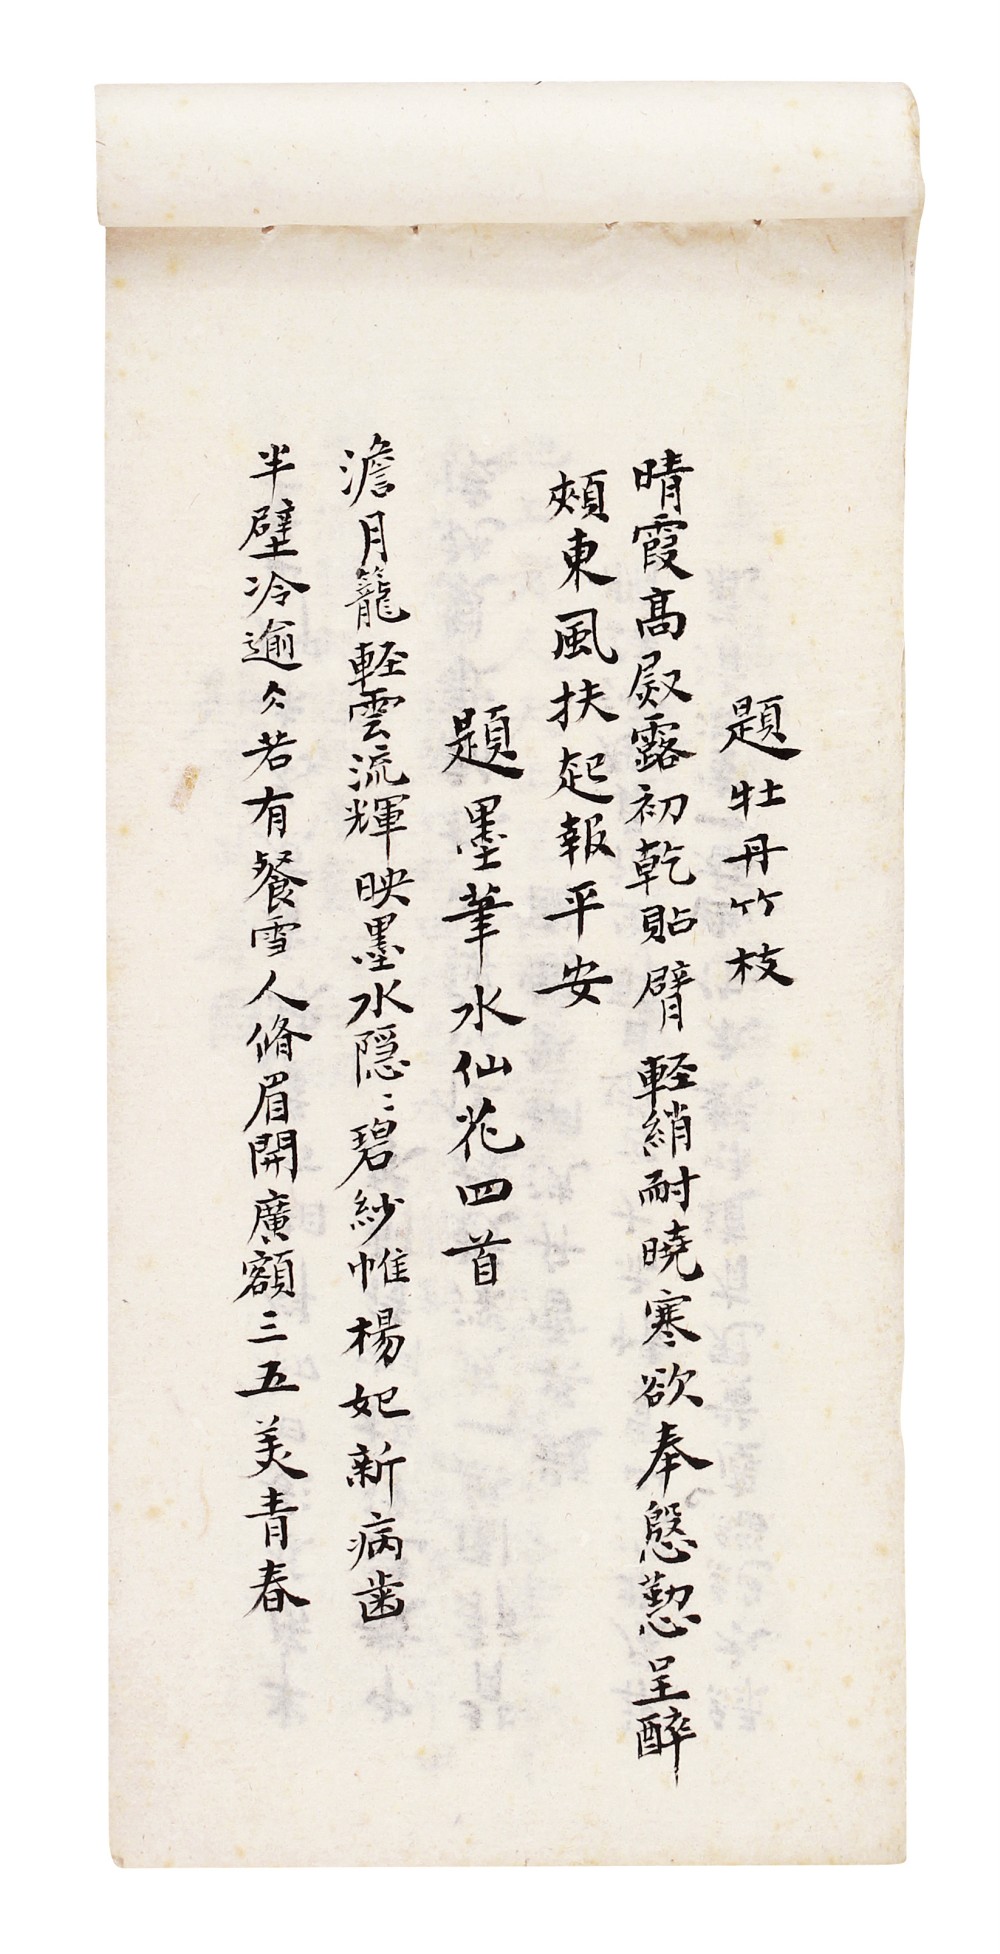 題牡丹竹枝
晴霞高殿露初乾貼臂軽綃耐曉寒欲奉慇懃呈醉
頰東風扶起報平安
題墨筆水仙花四首
澹月籠軽雲流輝映墨水隠〻碧紗帷楊妃新病歯
半壁冷逾〻若有餐雪人脩眉開廣額三五美青春